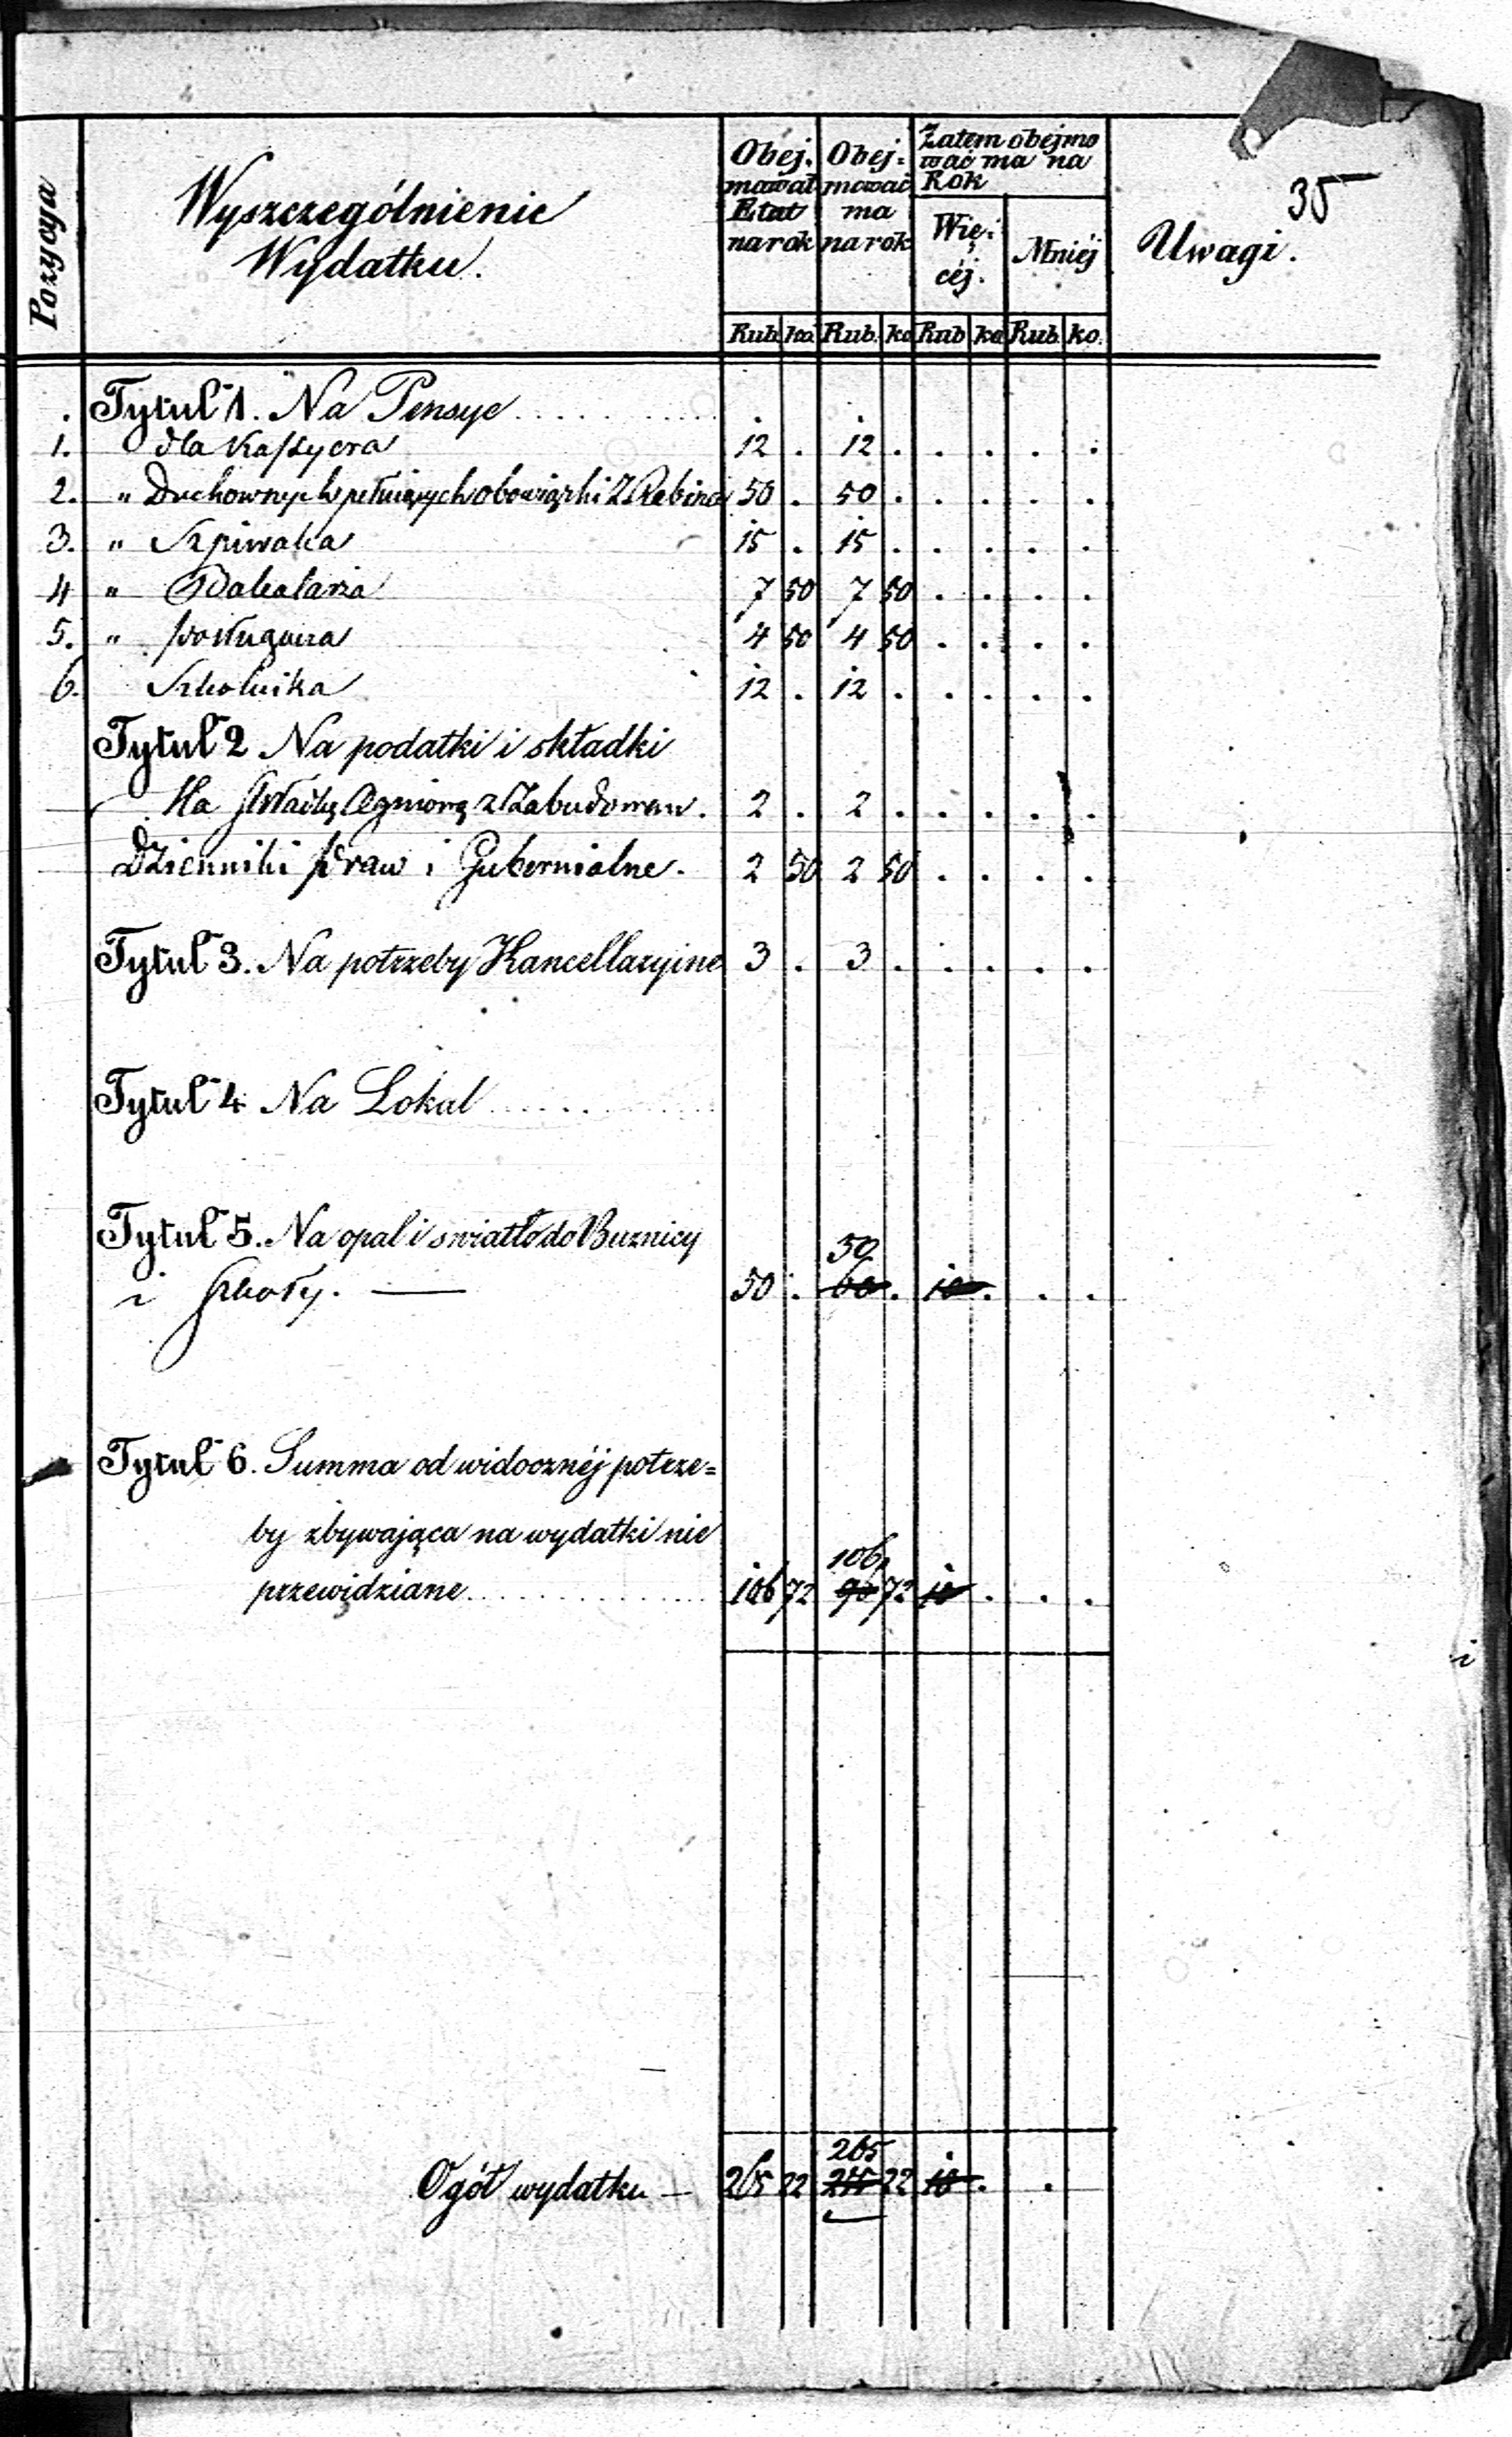 35
Pozycya
Wyszczególnienie
Wydatku.
Obej.
mował
Etat
na rok
Obej=
mować
ma
na rok
Zatem obejmo
wać ma na
Rok
Wię=
céj.
Mniéj
Uwagi.
Rub. ko. Rub. ko Rub ko Rub. ko.
Tytuł 1. Na Pensye
1. dla Kassyera 12 . 12 . . . . .
2. " Duchownych pełniących obowiązki Z. Rabina 50 . 50 . . . . .
3. " Szpiwaka 15 . 15 . . . . .
4 " 7 50 7 50 . . . .
5. " posługacza 4 50 4 50 . . . .
6. Szkolnika 12 . 12 . . . . .
Tytuł 2 Na podatki i składki
Na Składkę Ogniową z Zabudowan. 2 . 2 . . . . .
Dzienniki praw i Gubernialne. 2 50 2 50 . . . .
Tytuł 3. Na potrzeby Kancellaryine 3 . 3 . . . . .
Tytuł 4 Na Lokal
Tytuł 5. Na opal i swiatło do Buznicy
50
i Szkoły. — 50 . 60 . 10 . . .
Tytuł 6. Summa od widocznéj potrze=
by zbywająca na wydatki nie
106
przewidziane 106 72 90 72 10 . . .
265
Ogół wydatku — 265 22 22 10 . .